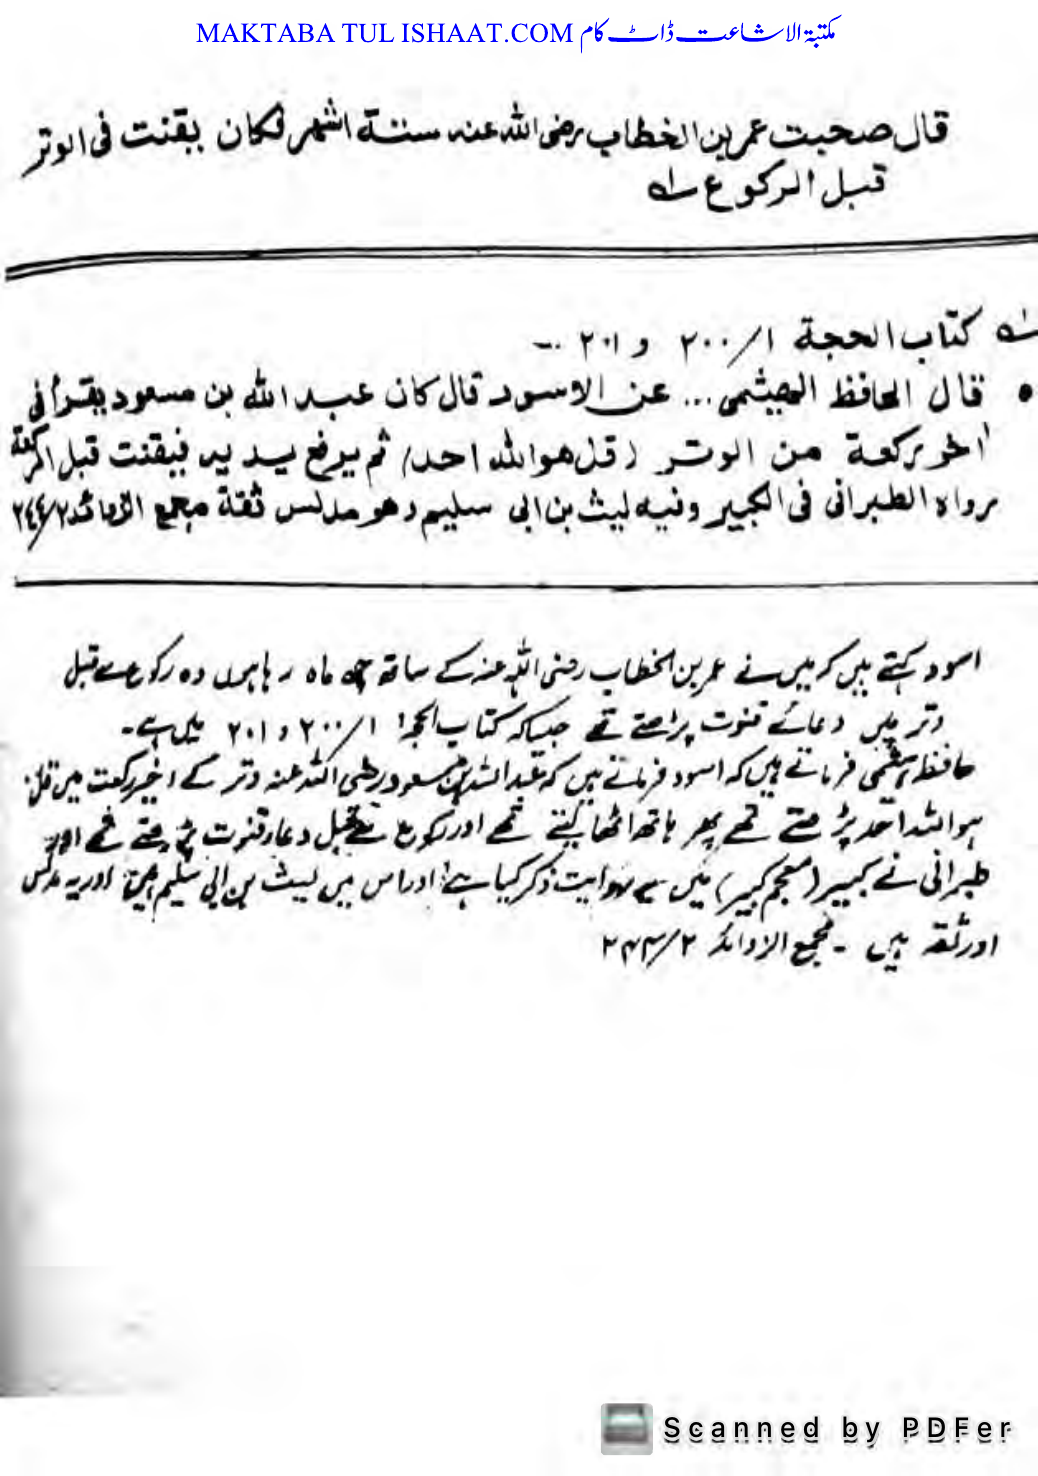 MAKTABA TUL ISHAAT.COM مکتبۃ الاشاعت ڈاٹ کام
قال صحبت عمر بن الخطاب رضی الله عنه ستة اشهر فكان يقنت فی الوتر
قبل الركوع له
له كتاب الحجة ١/ ٢٠٠ و ٢٠١ ـ
• قال الحافظ الهيثمی... عن الاسود قال كان عبد الله بن مسعود يقرأ فی
آخر ركعة من الوتر (قل هو الله احد) ثم يرفع يديه فيقنت قبل الركعة
رواه الطبرانی فی الكبير وفيه ليث بن ابی سليم وهو مدلس ثقة مجمع الزوائد ٢٤٤/٢
اسود کہتے ہیں کہ میں نے عمر بن الخطاب رضی اللہ عنہ کے ساتھ چھ ماہ رہا ہوں وہ رکوع سے قبل
وتر میں دعائے قنوت پڑھتے تھے جیساکہ کتاب الحجۃ ١/ ٢٠٠ و ٢٠١ میں ہے۔
حافظ ہیثمی فرماتے ہیں کہ اسود فرماتے ہیں کہ عبداللہ بن مسعود رضی اللہ عنہ وتر کے اخیر رکعت میں قل
ہو اللہ احد پڑھتے تھے پھر ہاتھ اٹھا لیتے تھے اور رکوع سے قبل دعاء قنوت پڑھتے تھے اور
طبرانی نے کبیر (معجم کبیر) میں یہ روایت ذکر کیا ہے، اور اس میں لیث بن ابی سلیم ہیں اور یہ مدلس
اور ثقہ ہیں ۔ مجمع الزوائد ٢/ ٢٤٤
Scanned by PDFer